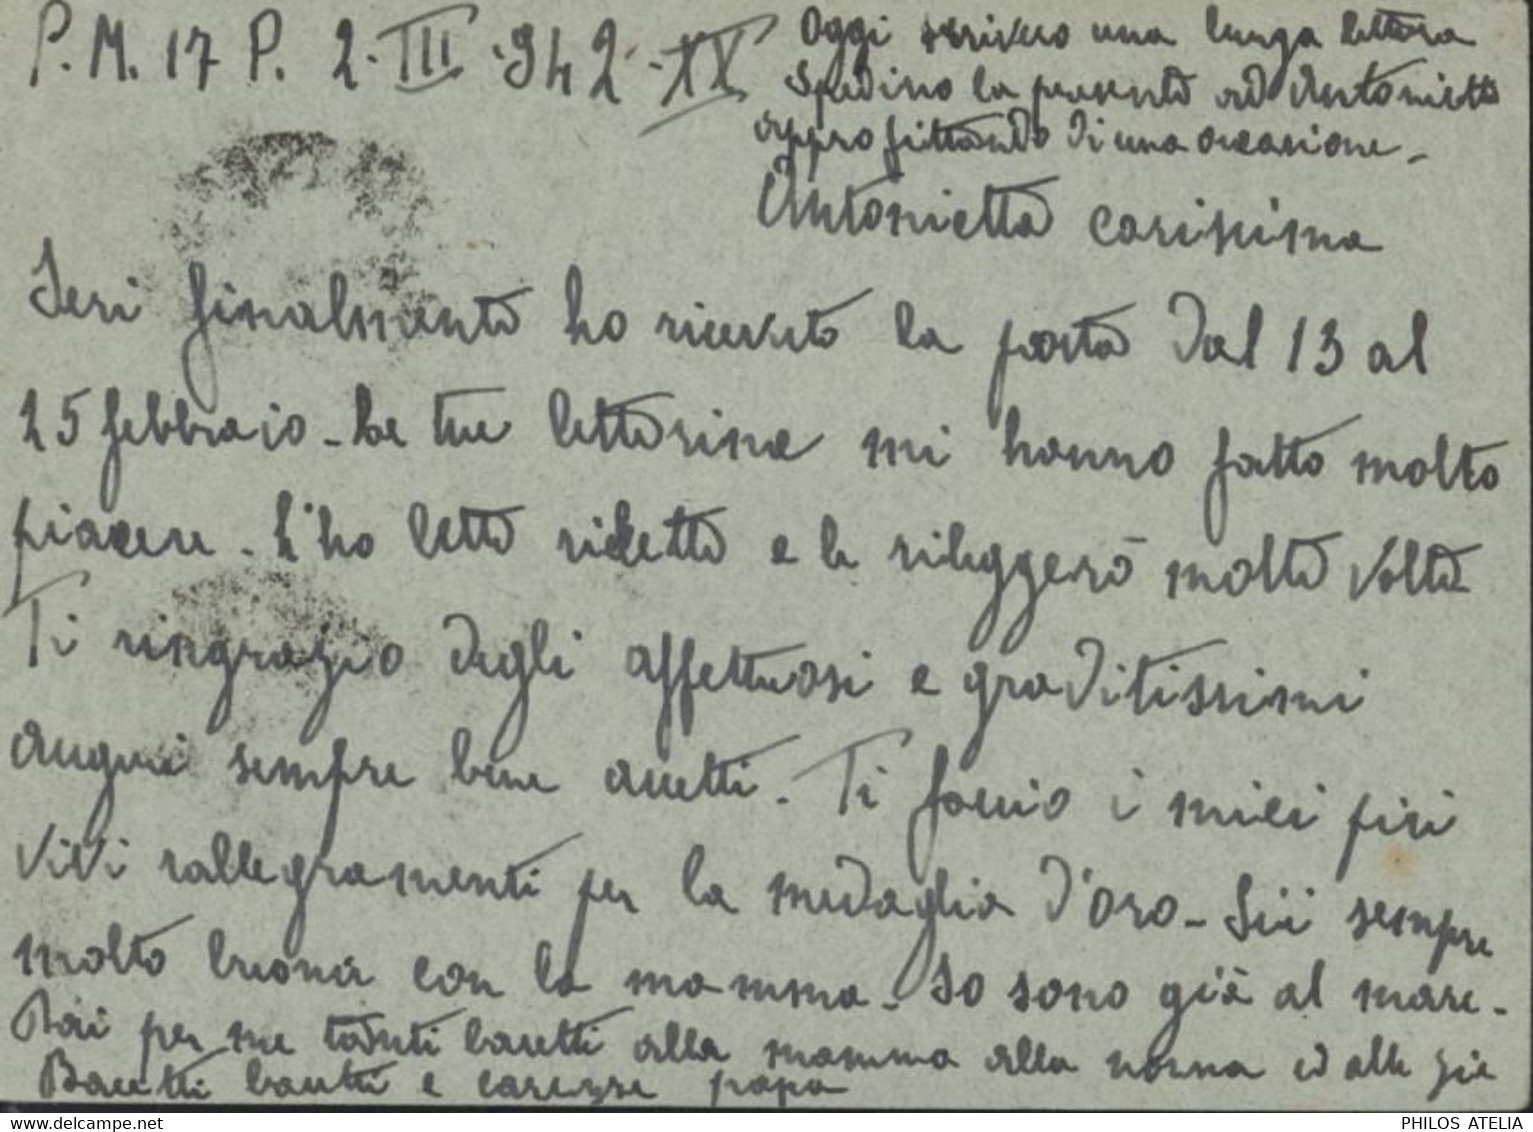 P.M. 17 P. 2-III-942-XX
Oggi scrivero una lunga lettera
Spedirvo la presente ad Antonietta
approfittando di una occasione -
Antonietta carissima
Ieri finalmente ho ricevuto la posta dal 13 al
25 febbraio - Le tue letterine mi hanno fatto molto
piacere - L'ho lette rilette e le rileggerò molte volte
Ti ringrazio degli affettuosi e graditissimi
auguri sempre bene accetti. Ti faccio i miei più
vivi rallegramenti per la medaglia d'oro - Sii sempre
molto buona con la mamma - Io sono già al mare -
Dai per me tanti bacetti alla mamma alla nonna ed alle zie
Bacetti bacetti e carezze papà
PHILOS ATELIA
www.delcampe.net